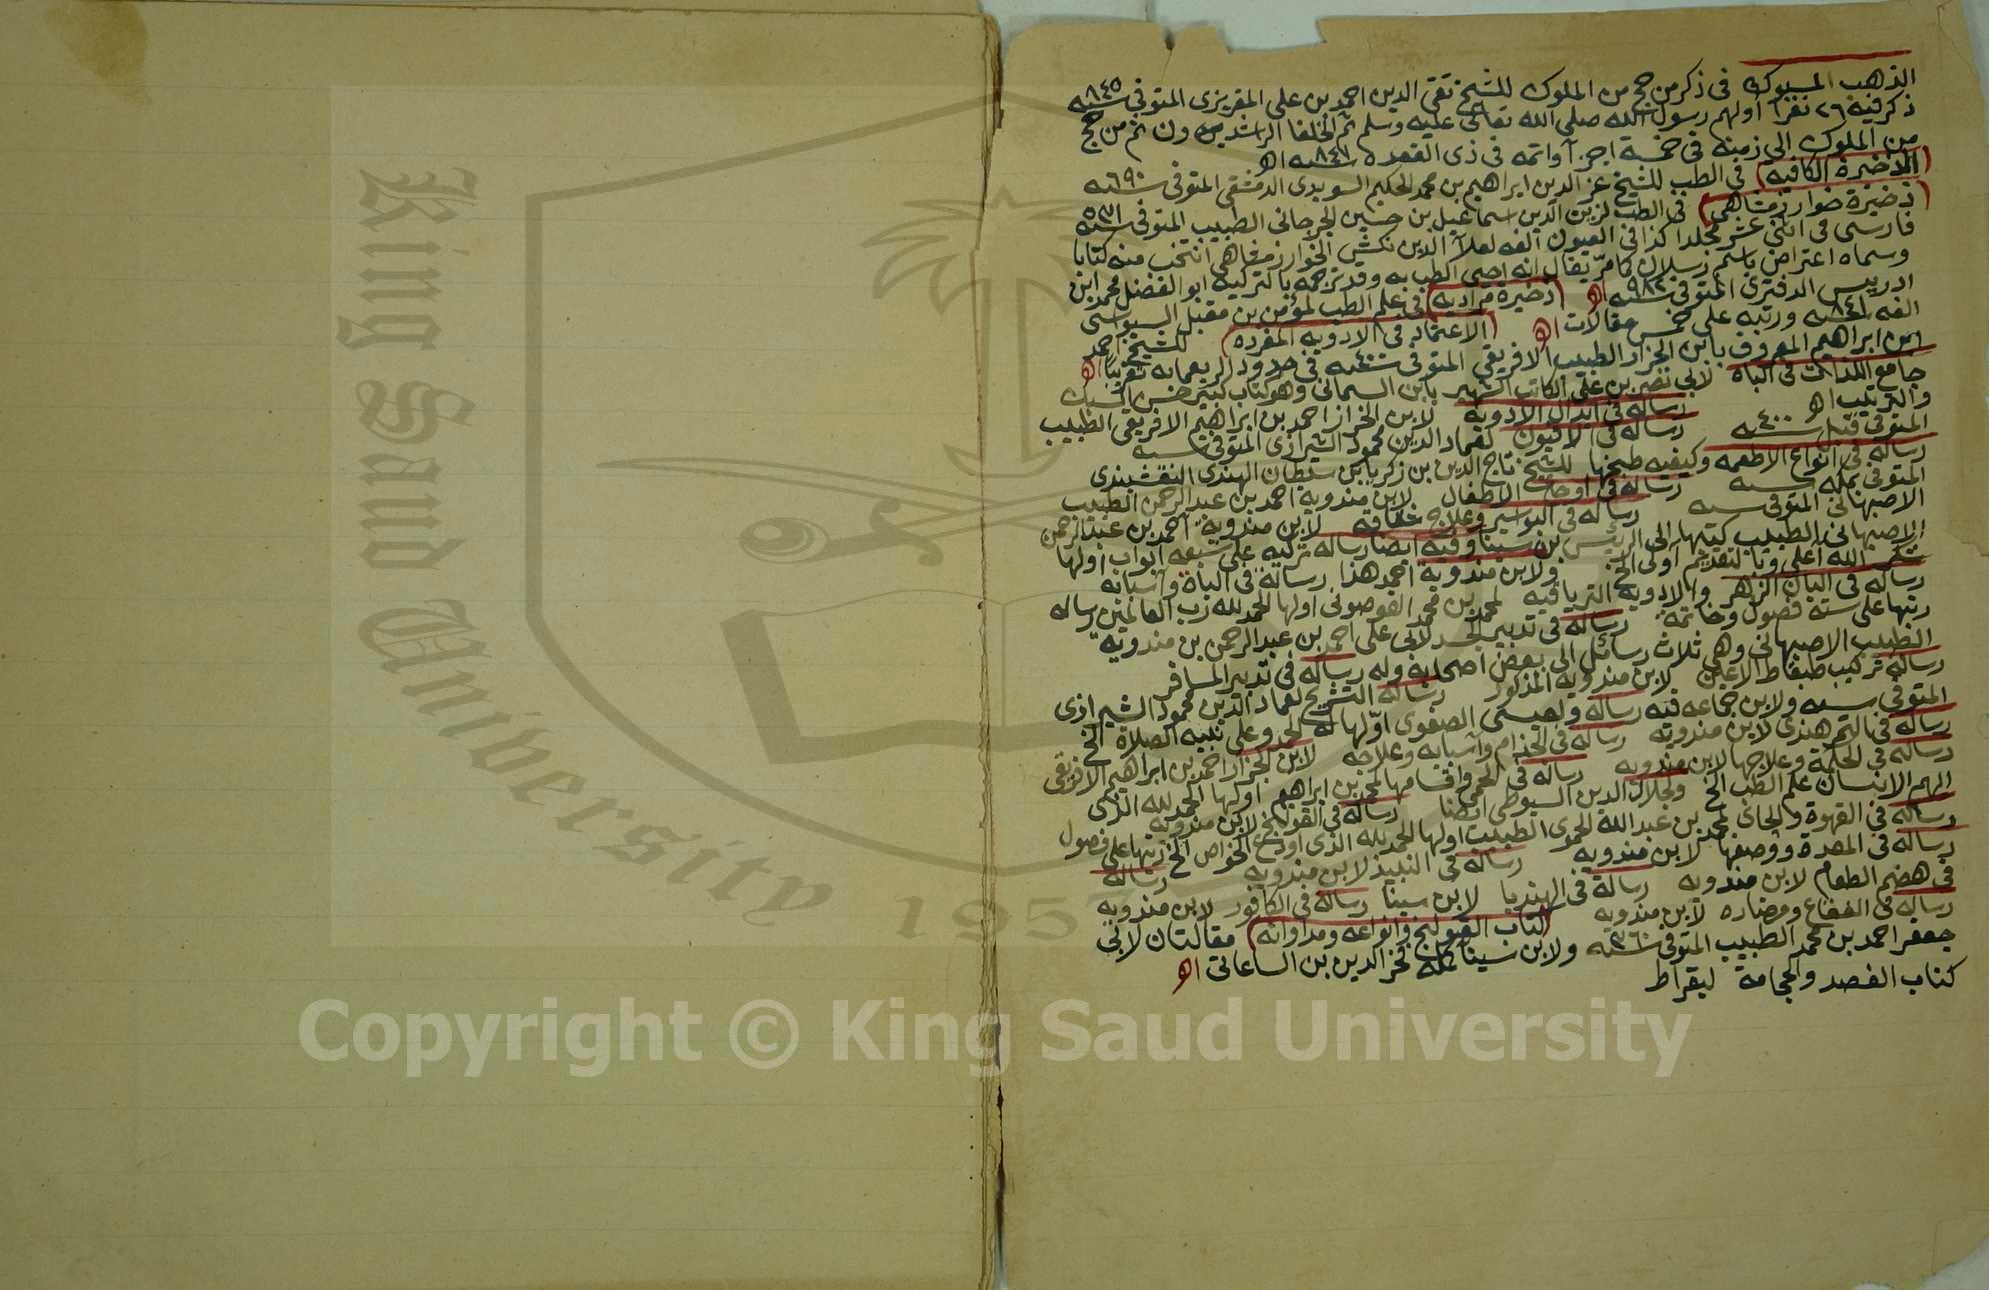 الذهب المسبوك في ذكر من حج من الملوك للشيخ تقي الدين احمد بن علي المقريزي المتوفى سنه ٨٤٥
ذكر فيه ٢٦ نفرا اولهم رسول الله صلى الله تعالى عليه وسلم ثم الخلفا الراشدين ثم من حج
من الملوك الى زمنه في خمسة اجزآ واتمه في ذي القعده سنه ٨٤٧ اه
(الذخيرة الكافيه) في الطب للشيخ عز الدين ابراهيم بن محمد الحكيم السويدي الدمشقي المتوفى سنه ٦٩٠
(ذخيرة خوارزمشاهي) في الطب لزين الدين اسماعيل بن حسين الجرجاني الطبيب المتوفى سنه ٥٣١
فارسي في اثني عشر مجلدا كذا في العيون الفه لعلآ الدين تكش الخوارزمشاهي انتخب منه كتابا
وسماه اعتراض باسم رسلان كما مرّ يقال انه احيى الطب به وقد ترجمه بالتركيه ابو الفضل محمد ابن
ادريس الدفتري المتوفى سنه ٩٨٢ اه (ذخيرة مراديه) في علم الطب لمؤمن بن مقبل السيواسي
الفه سنه ٨٤١ ورتبه على خمس مقالات اه (الاعتماد في الادويه المفرده) للشيخ احمد
بن ابراهيم المعروف بابن الجزار الطبيب الافريقي المتوفى سنه ٤٠٠ في حدود اربعمائه تقريبا اه
جامع اللذات في الباه لابي نصر بن علي الكاتب الشهير بابن السماني وهو كتاب كبير حسن السبك
والترتيب اه رسالة في ابدال الادويه لابن الجزار احمد بن ابراهيم الافريقي الطبيب
المتوفى قبل سنه ٤٠٠ رساله في الافيون لعماد الدين محمود الشيرازي المتوفى سنه
رساله في انواع الاطعمه وكيفيه طبخها للشيخ تاج الدين بن زكريا بن سلطان الهندي النقشبندي
المتوفى بمكه سنه رساله في اوجاع الاطفال لابن مندويه احمد بن عبد الرحمن الطبيب
الاصبهاني المتوفى سنه رساله في البواسير وعلاج لابن مندويه احمد بن عبد الرحمن
الاصبهاني الطبيب كتبها الى الرئيس بن سينا وفيه ايضا رساله تركيه على سبعه ابواب اولها
شكر الله اعلى وبالتقديم اولى الخ ولابن مندويه احمد هذا رسالة في الباه واسبابه
رساله في البان الزهر والادويه الترياقيه لمحمد بن محمد القوصوني اولها الحمد لله رب العالمين رساله
رتبها على ستة فصول وخاتمة رساله في تدبير الجسد لابي علي احمد بن عبد الرحمن بن مندويه
الطبيب الاصبهاني وهي ثلاث رسائل الى بعض اصحابه وله رساله في تدبير المسافر
رسالة تركيب طبقات الاعين لابن مندويه المذكور رسالة التشريح لعماد الدين محمود الشيرازي
المتوفى سنه ولابن جماعه فيه رساله ولعيسى الصفوي اولها له الحمد وعلى نبيه الصلاة الخ
رساله في التمر هندي لابن مندويه رساله في الجذام واسبابه وعلاجه لابن الجزار احمد بن ابراهيم الافريقي
رساله في الحكة وعلاجها لابن مندويه رساله في الحمى واقسامها لمحمد بن ابراهيم اولها الحمد لله الذي
الهم الانسان علم الطب الخ ولجلال الدين السيوطي ايضا رساله في القولنج لابن مندويه
رساله في القهوة والجاي لمحمد بن عبد الله الحموي الطبيب اولها الحمد لله الذي اودع الخواص الخ رتبها على فصول
رساله في المعدة ووصفها لابن مندويه رساله في النبيذ لابن مندويه رساله
في هضم الطعام لابن مندويه رسالة في الهندبا لابن سينا رساله في الكافور لابن مندويه
رساله في الفقاع ومضاره لابن مندويه (كتاب القولنج وانواعه ومداواته) مقالتان لابي
جعفر احمد بن محمد الطبيب المتوفى سنه ٣٦٠ ولابن سينا كمله فخر الدين بن الساعاتي اه
كتاب الفصد والحجامة لبقراط
King Saud University
1957
Copyright © King Saud University